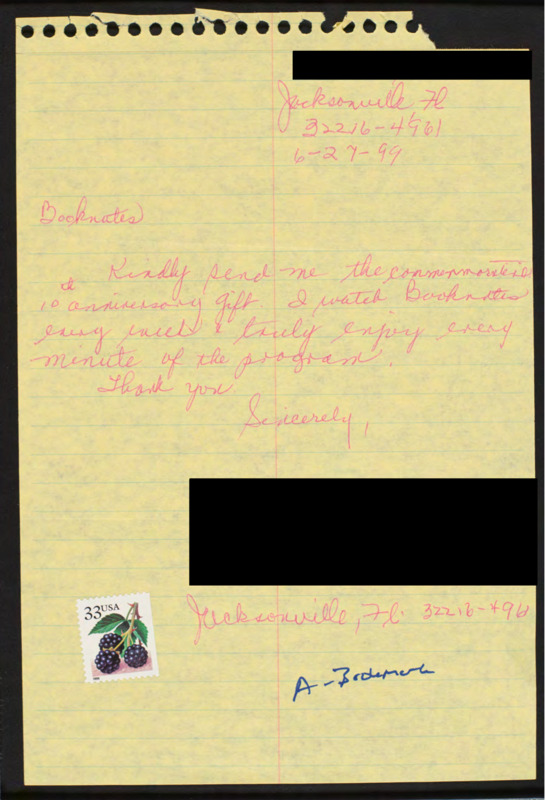 Jacksonville Fl
32216-4961
6-27-99
Booknotes
Kindly send me the commenmorative
10th anniversary gift. I watch Booknotes
every week & truly enjoy every
minute of the program.
Thank you
Sincerely,
33USA
Jacksonville, Fl. 32216-4961
A-Bookmark